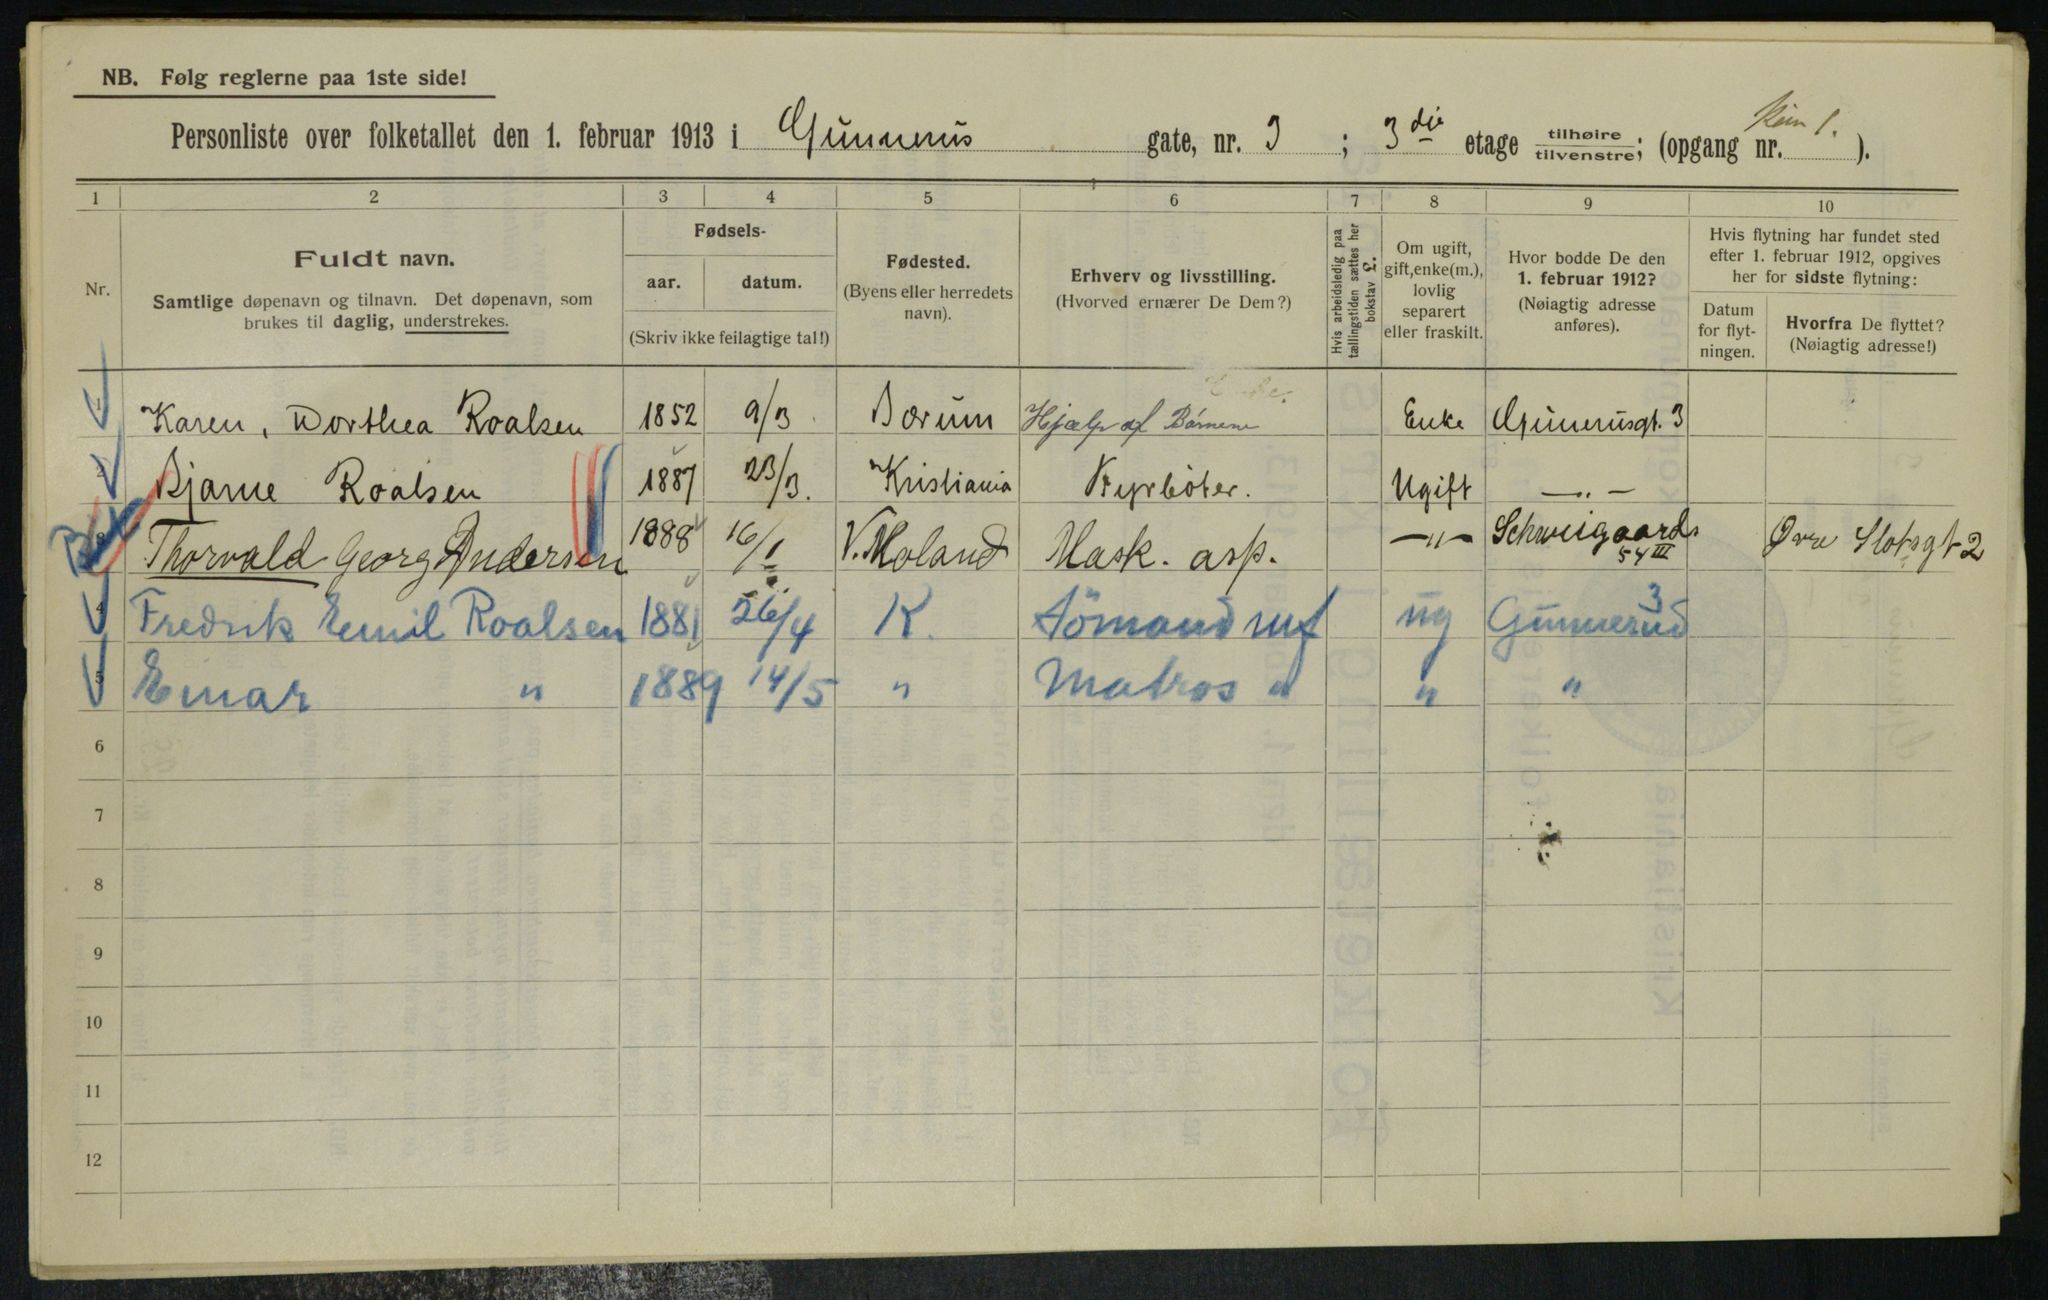 NB. Følg reglerne paa 1ste side!
Personliste over folketallet den 1. februar 1913 i Gunnerus gate, nr. 3; 3die etage tilhøire tilvenstre; (opgang nr. ).
1 2 3 4 5 6 7 8 9 10
Nr.
Fuldt navn.
Samtlige døpenavn og tilnavn. Det døpenavn, som
brukes til daglig, understrekes.
Fødsels-
aar. datum.
(Skriv ikke feilagtige tal!)
Fødested.
(Byens eller herredets
navn).
Erhverv og livsstilling.
(Hvorved ernærer De Dem?)
Hvis arbeidsledig paa
tællingstiden sættes her
bokstav £.
Om ugift,
gift, enke(m.),
lovlig
separert
eller fraskilt.
Hvor bodde De den
1. februar 1912?
(Nøiagtig adresse
anføres).
Hvis flytning har fundet sted
efter 1. februar 1912, opgives
her for sidste flytning:
Datum
for flyt-
ningen.
Hvorfra De flyttet?
(Nøiagtig adresse!)
1 Karen, Dorthea Roalsen 1852 9/3 Bærum Hjælp af Børnene Enke Gunerusgt. 3
2 Bjarne Roalsen 1887 23/3. Kristiania Fyrböter. Ugift —"—
3 Thorvald Georg Andersen 1888 16/1 V. Moland Mask. asp. —"— Schweigaards 54 III Øvre Slotsgt 2
4 Fredrik Emil Roalsen 1881 26/4 K. Sömand uf ug Gunnerud 3
5 Einar " 1889 14/5 " Matros " " "
6
7
8
9
10
11
12